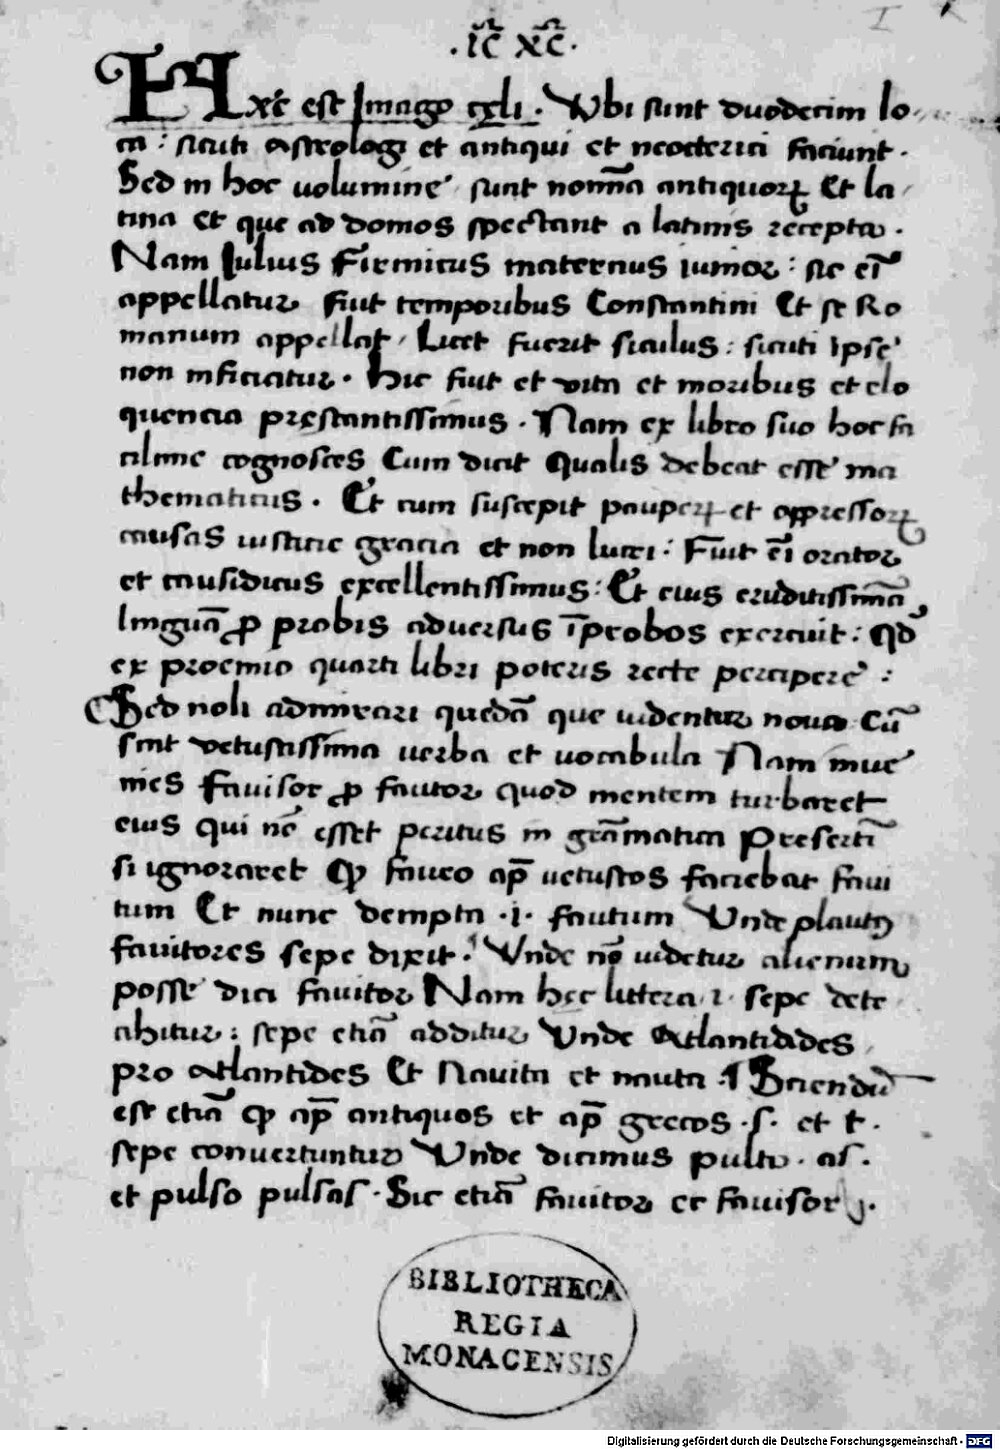 I
.ic̄ xc̄.
Hęc est Imago cęli . Vbi sunt duodecim lo-
ca : sicuti astrologi et antiqui et neoterici faciunt .
Sed in hoc uolumine sunt nomīa antiquorꝝ Et la
tina et que ad domos spectant a latinis recepta .
Nam Iulius Firmicus maternus iunior : sic eī
appellatur fuit temporibus Constantini Et se Ro
manum appellat / Licet fuerit siculus : sicuti ipse
non inficiatur . Hic fuit et vita et moribus et elo
quencia pręstantissimus . Nam ex libro suo hoc fa
cilime cognosces Cum dicit Qualis debeat esse ma
thematicus . Et cum suscepit pauperꝝ et oppressorꝝ
causas iusticie gracia et non lucri : Fuit eī orator
et causidicus excellentissimus : Et eius eruditissimā
linguā ꝓ probis aduersus īprobos exercuit : Qđ
ex proemio quarti libri poteris recte percipere :
Sed noli admirari quedā que uidentur noua Cū
sint vetustissima uerba et uocabula Nam inue
nies fauisor ꝓ fautor quod mentem turbaret
eius qui nō esset peritus in grāmatica Presertī
si ignoraret ꝙ faueo ap̄ uetustos faciebat faui
tum Et nunc dempta .i. fautum Vnde plautꝰ
fauitores sepe dixit . Vnde nō uidetur alienum
posse dici fauitor Nam hęc littera .i. sepe detra
ahitur : sepe etiā additur Vnde Atlantiades
pro Atlantides Et Nauita et nauta . Sciendū
est etiā ꝙ ap̄ antiquos et ap̄ grecos .s. et t.
sepe conuertuntur Vnde dicimus pulto . as .
et pulso pulsas . Sic etiā fauitor et fauisor .
BIBLIOTHECA
REGIA
MONACENSIS
Digitalisierung gefördert durch die Deutsche Forschungsgemeinschaft - DFG